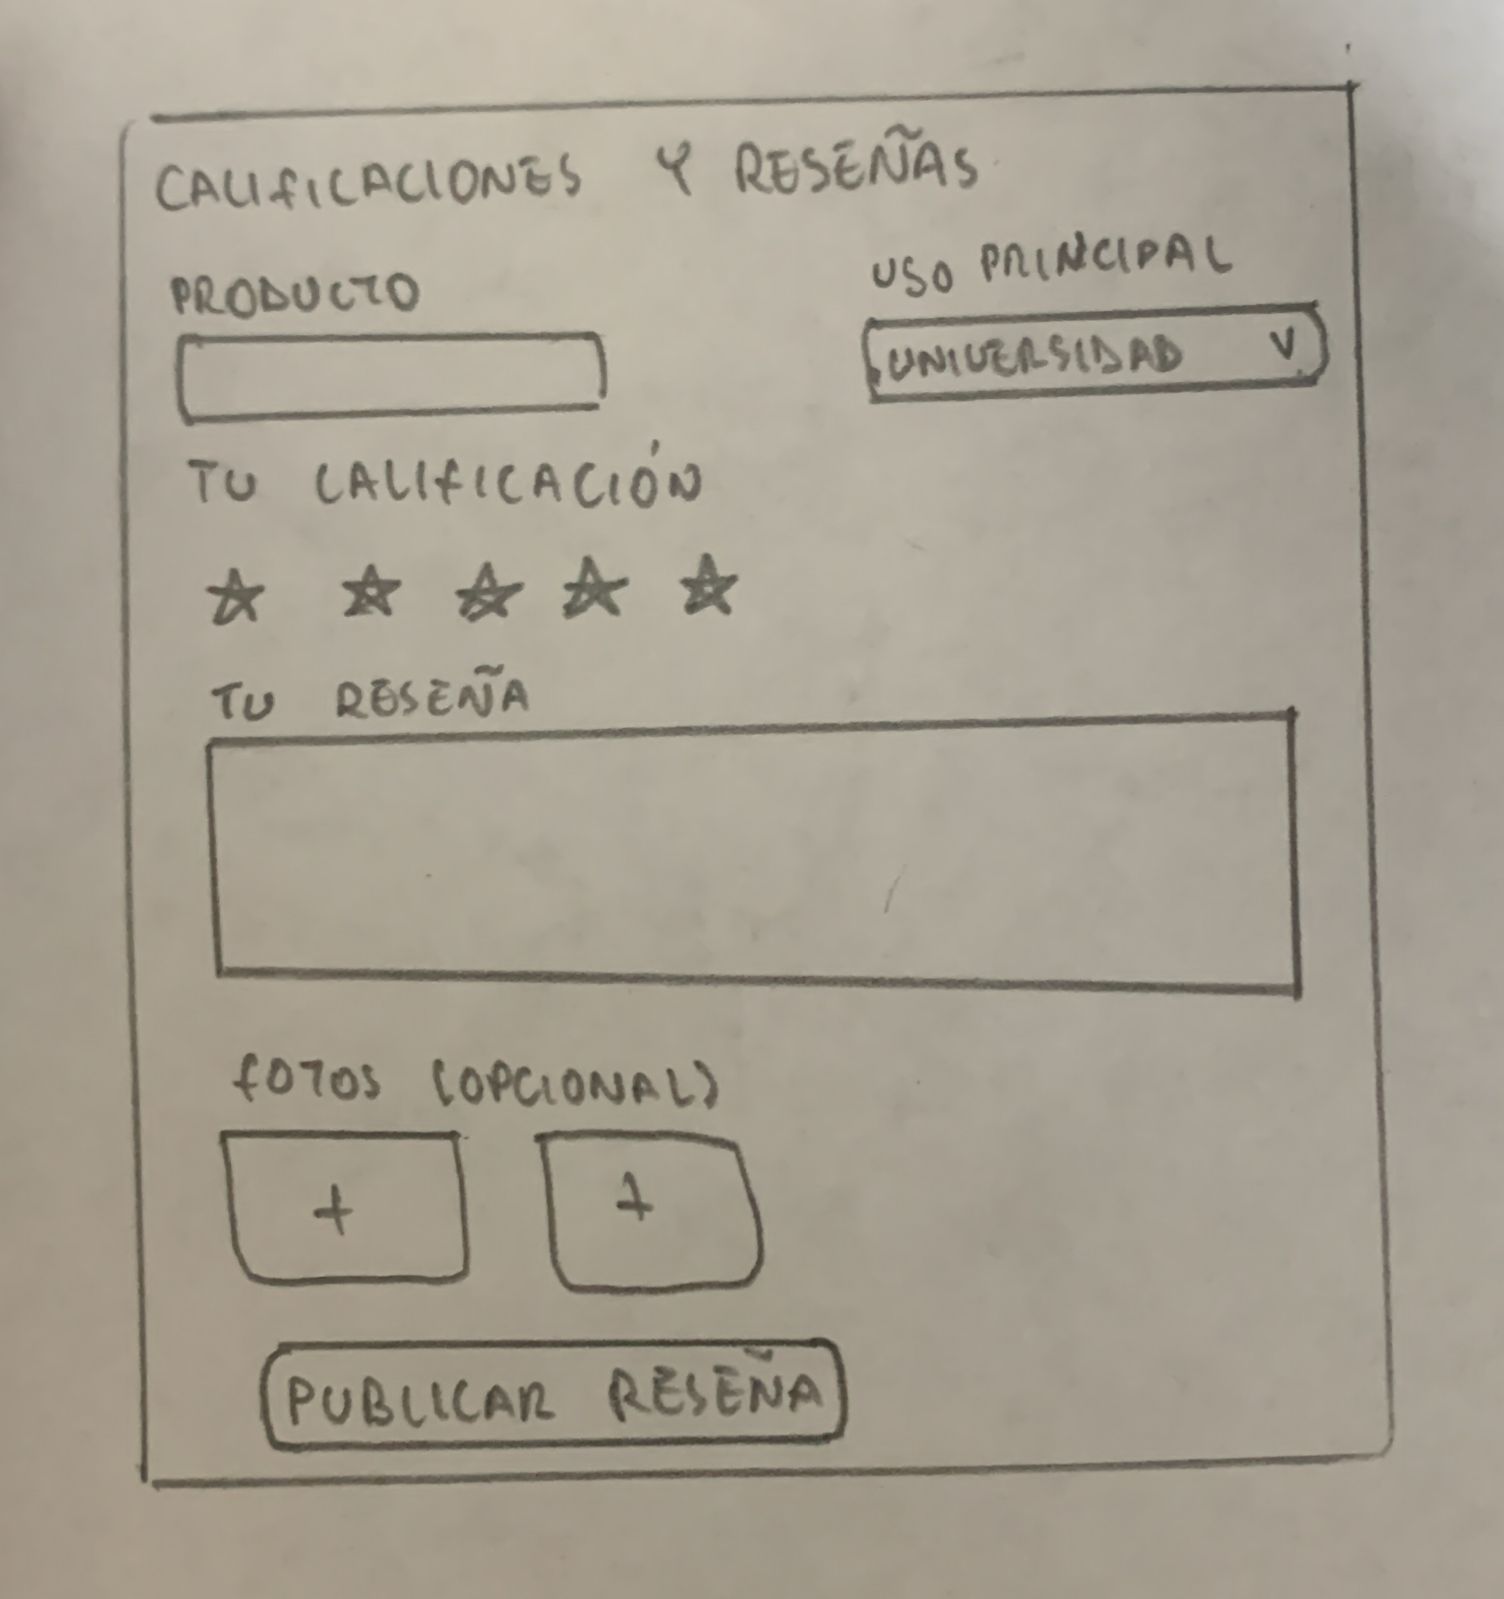 CALIFICACIONES Y RESEÑAS
PRODUCTO
USO PRINCIPAL
UNIVERSIDAD V
TU CALIFICACIÓN
TU RESEÑA
FOTOS (OPCIONAL)
+ +
PUBLICAR RESEÑA